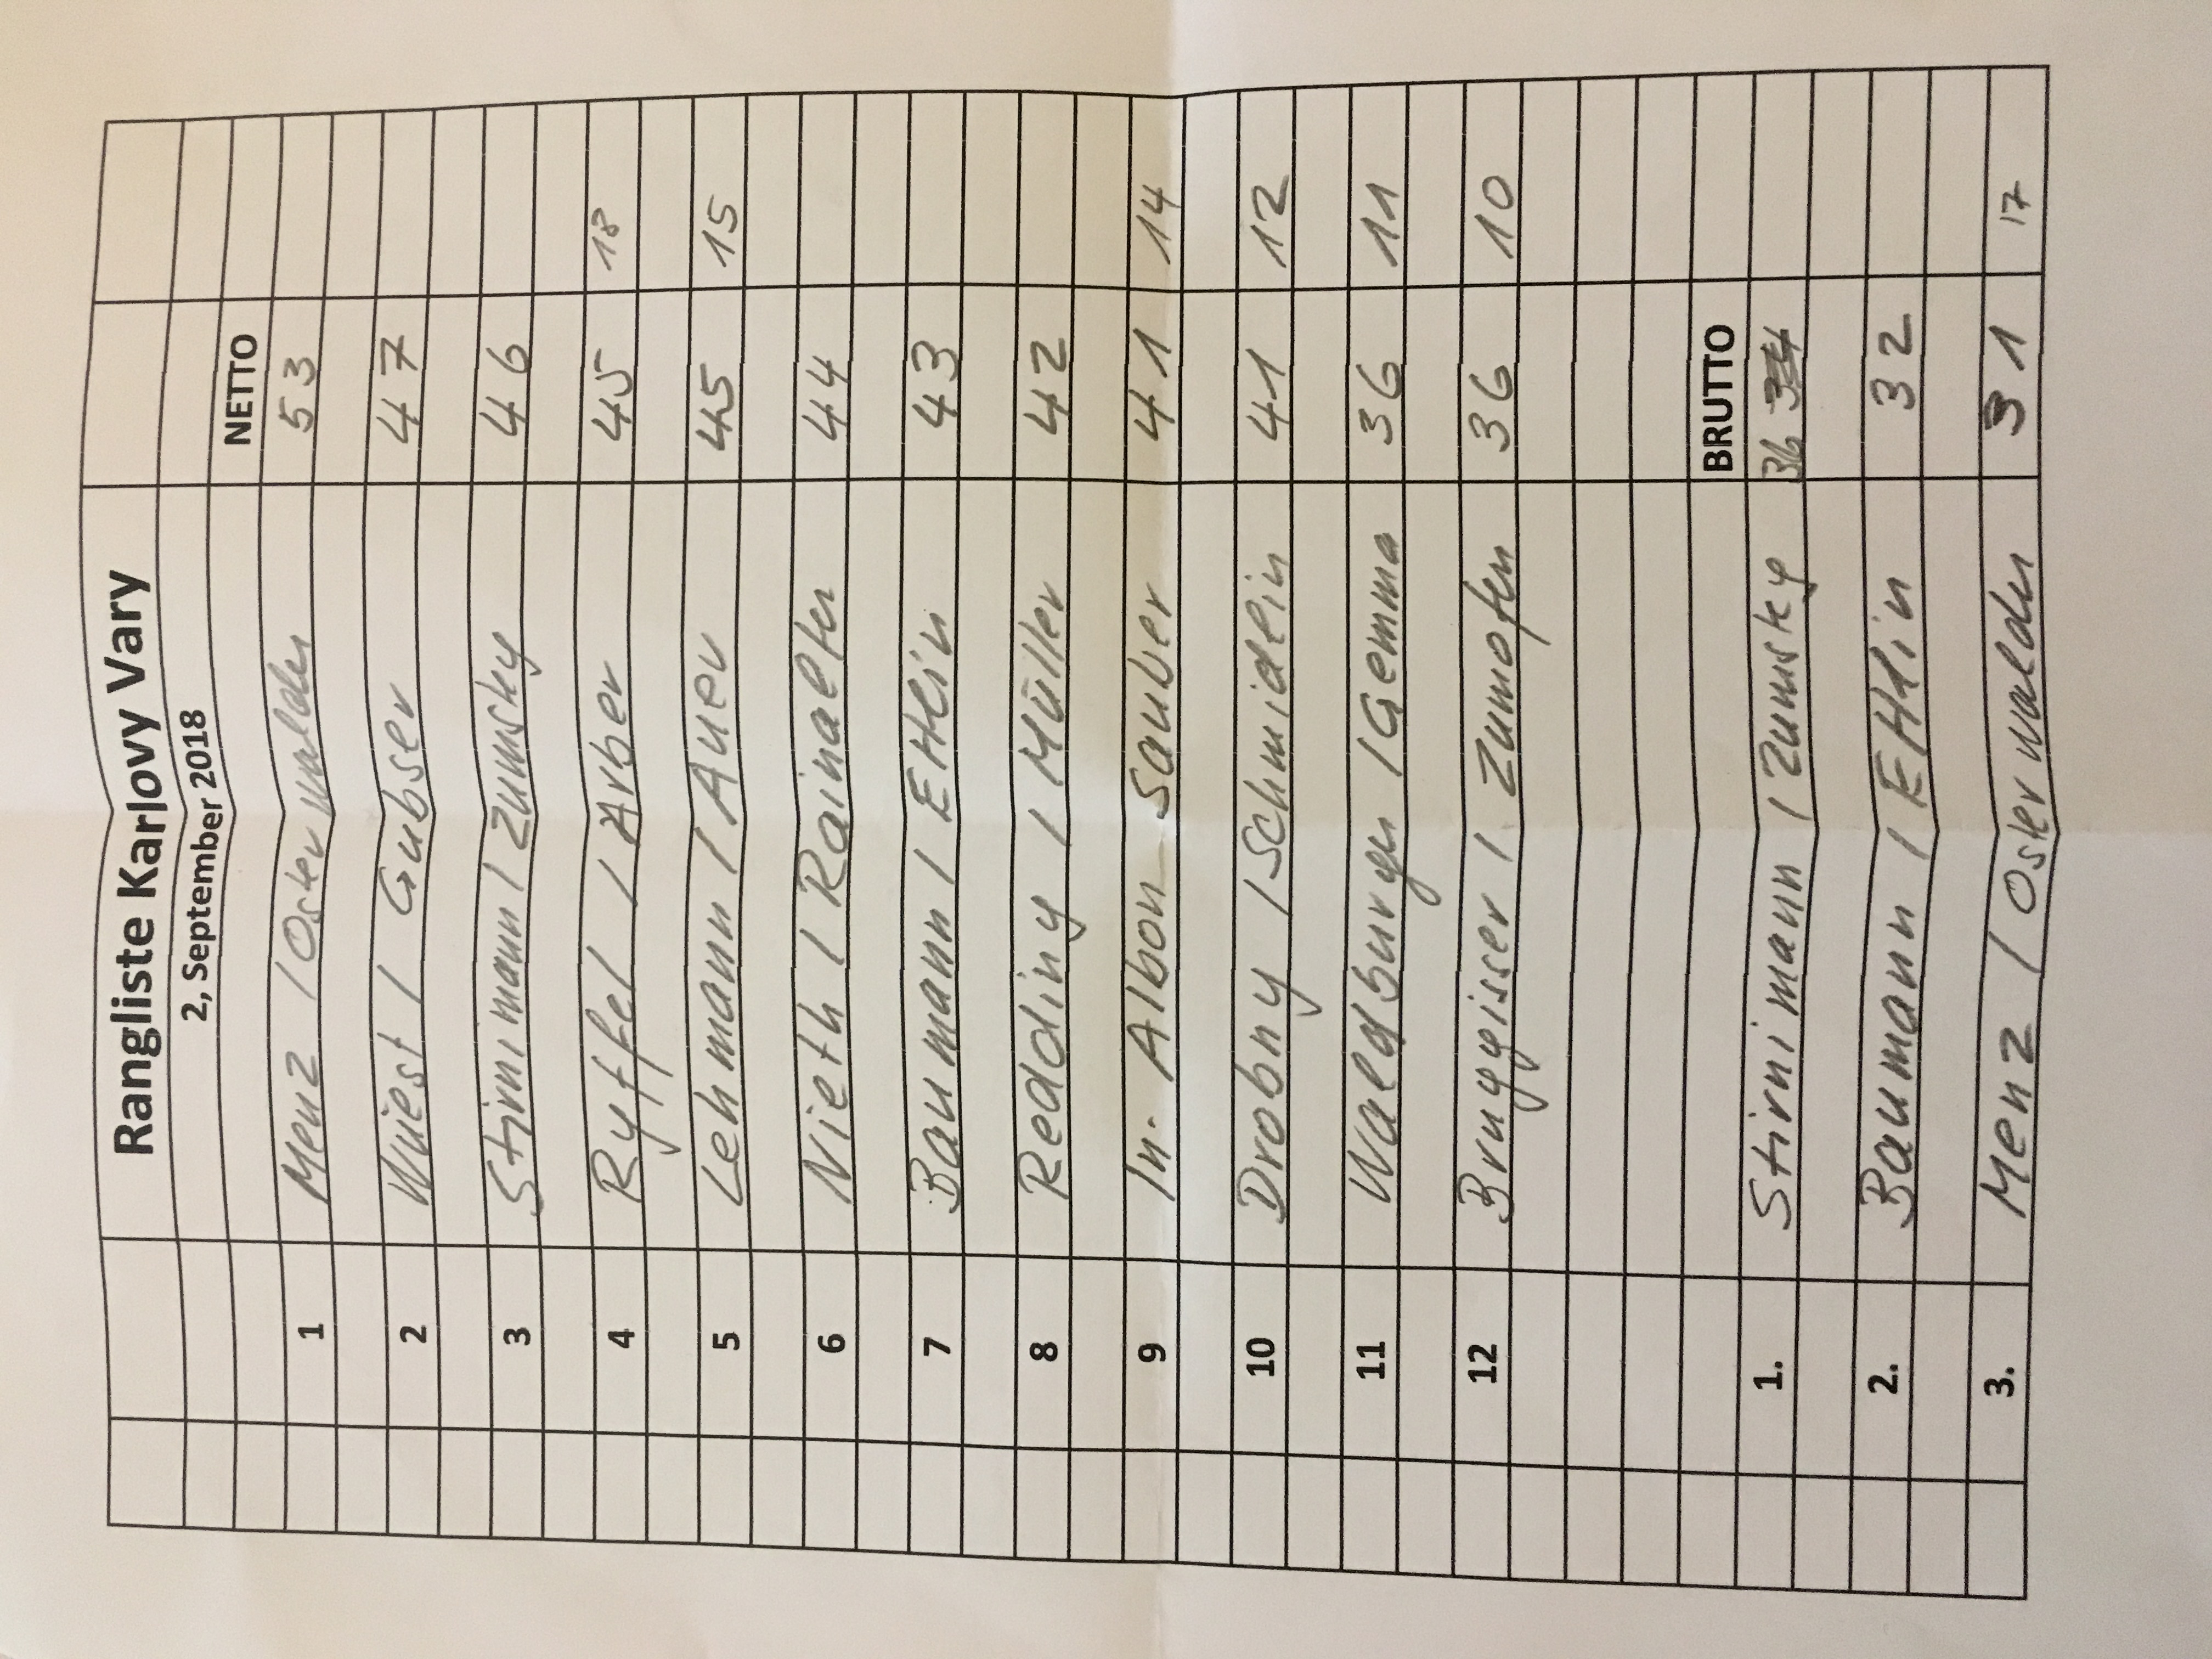 Rangliste Karlovy Vary
2, September 2018
NETTO
1 Menz / Osterwalder 53
2 Wüest / Gubser 47
3 Stirnimann / Zumsky 46
4 Ryffel / Arber 45 18
5 Lehmann / Auer 45 15
6 Nieth / Rainalter 44
7 Baumann / Ettlin 43
8 Reding / Müller 42
9 In-Albon Sauber 41 14
10 Drobny / Schmidlin 41 12
11 Waldburger / Gemma 36 11
12 Bruggisser / Zumofen 36 10
BRUTTO
1. Stirnimann / Zumsky 36
2. Baumann / Ettlin 32
3. Menz / Osterwalder 31 17